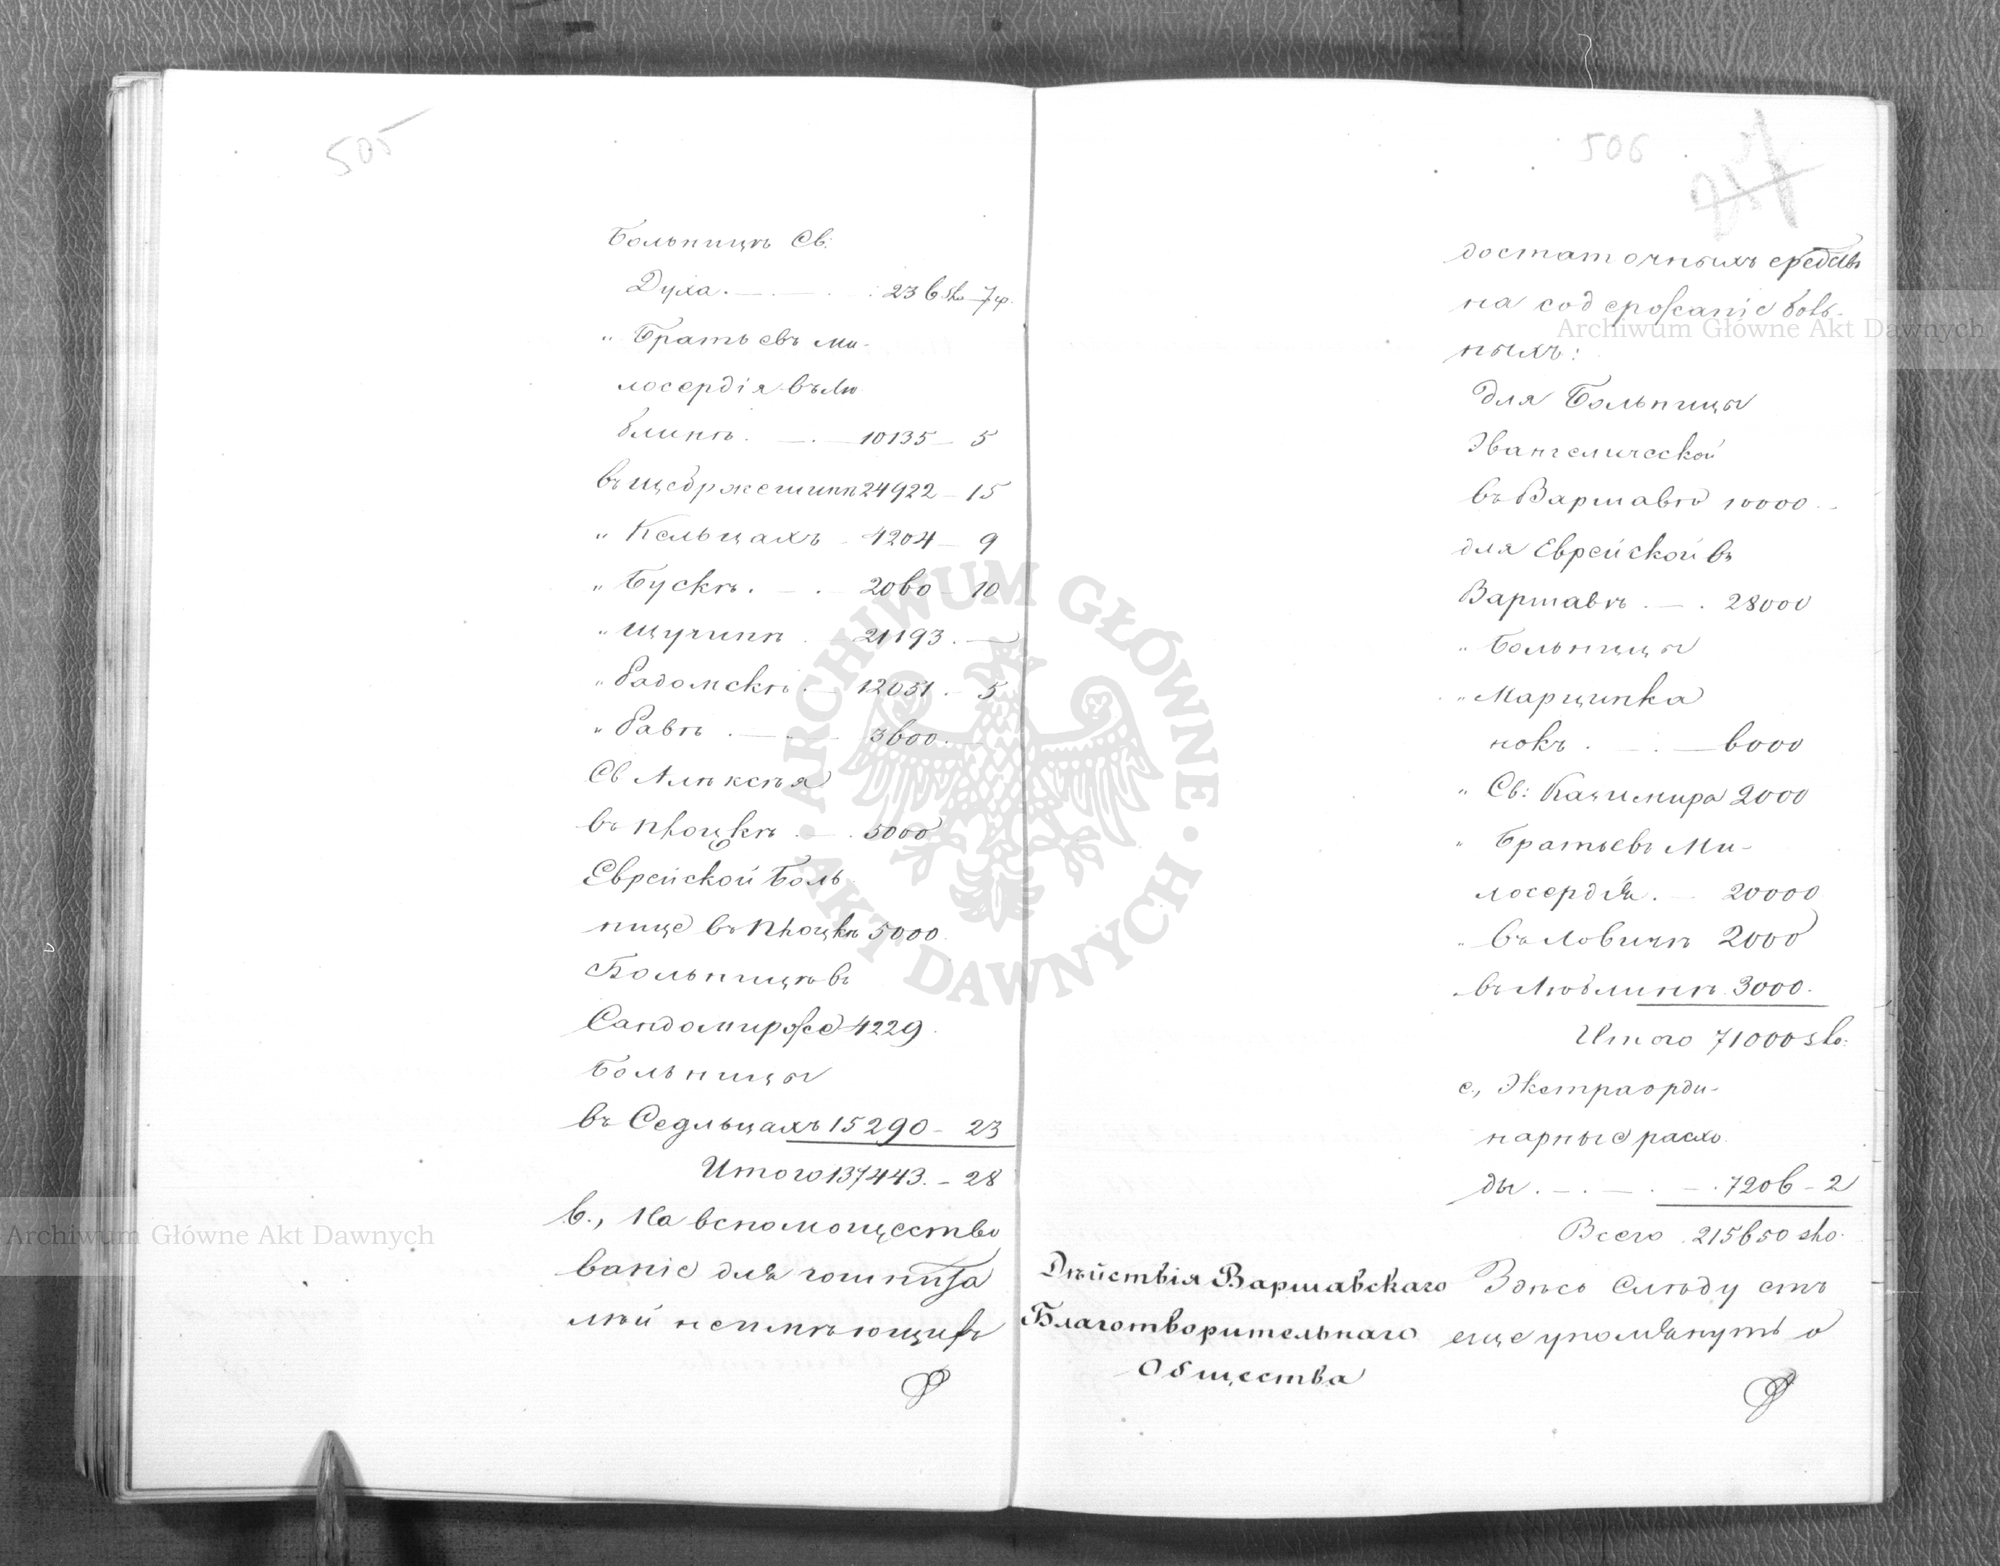 505
Больницѣ Св:
Духа . — . — . 236 zło 7 гр.
„ Братьевъ ми-
лосердія въ Лю
блинѣ . — . — 10135 — 5
въ Щебржешинѣ 24922 — 15
„ Кельцахъ — 4204 — 9
„ Бускѣ . — . 2060 — 10
„ Щучинѣ . — 21193 . —
„ Радомскѣ . — 12051 . — 5
„ Равѣ . — . — 3600 . —
Св Алѣксѣя
въ Плоцкѣ . — . 5000
Еврейской Боль
ницѣ въ Плоцкѣ 5000
Больницѣ въ
Сандомирже 4229
Больницы
въ Седльцахъ 15290 — 23
Итого 137443 . — 28
в., На вспомощество
ваніе для гошпита
лѣй неимѣющихъ
506
достаточныхъ средствъ
на содержаніе боль-
ныхъ:
для Больницы
Эвангелической
въ Варшавѣ 10000 . —
для Еврейской въ
Варшавѣ . — . 28000
„ Больницы
„ Марцинка
нокъ . — . — 6000
„ Св: Казимира 2000
„ Братьевъ Ми-
лосердія . — 20000
„ въ Ловичѣ 2000
въ Люблинѣ 3000 .
Итого 71000 zło:
с., Экстраорди-
нарные расхо
ды . — . — . — . 7206 — 2
Всего . 215650 zło.
Дѣйствія Варшавскаго
Благотворительнаго
Общества
Здѣсь слѣдуетъ
еще упомянуть о
Archiwum Główne Akt Dawnych
Archiwum Główne Akt Dawnych
ARCHIWUM GŁÓWNE · AKT DAWNYCH ·